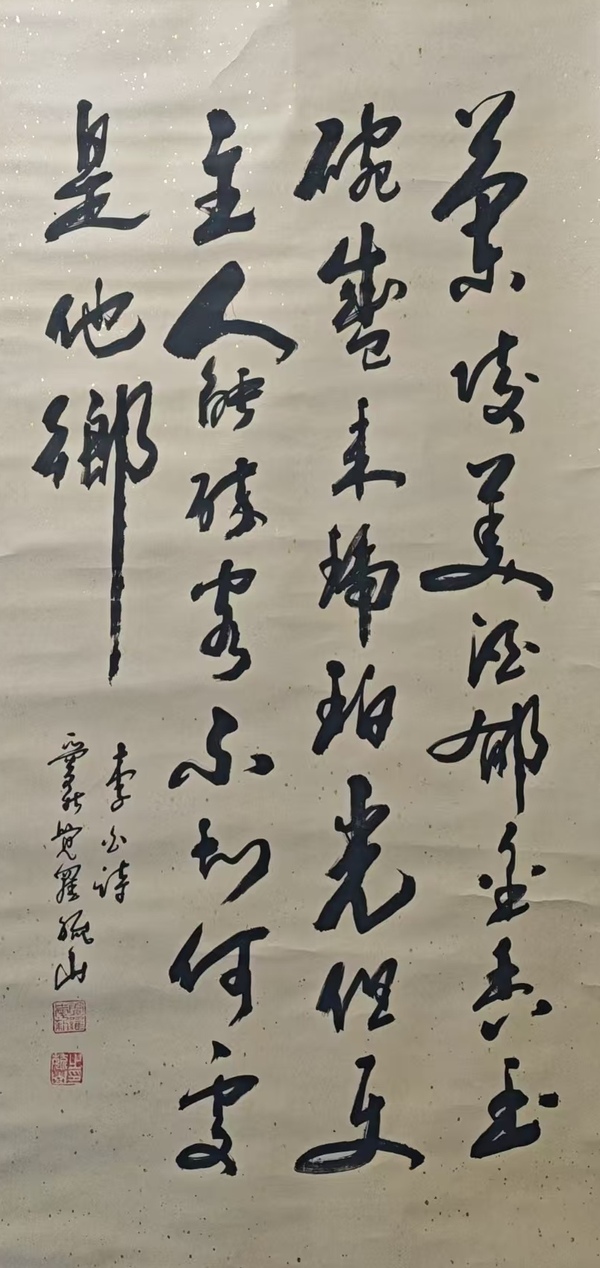 蘭陵美酒郁金香玉
碗盛来琥珀光但使
主人能醉客不知何處
是他鄉
李白詩
覺羅毓山